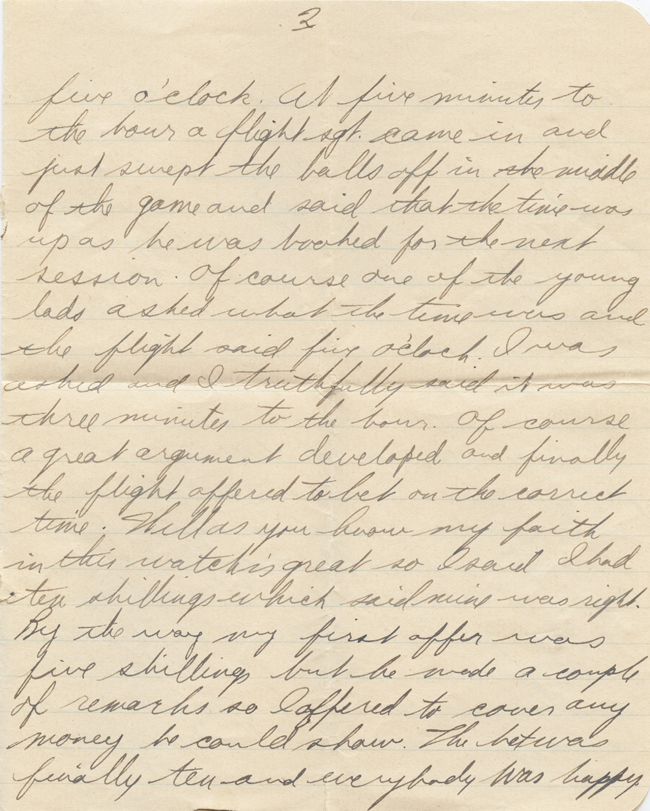 2
five o'clock. At five minutes to
the hour a flight sgt. came in and
just swept the balls off in the middle
of the game and said that the time was
up as he was booked for the next
session. Of course one of the young
lads asked what the time was and
the flight said five o'clock. I was
asked and I truthfully said it was
three minutes to the hour. Of course
a great argument developed and finally
the flight offered to bet on the correct
time. Well as you know my faith
in this watch is great so I said I had
ten shillings which said mine was right.
By the way my first offer was
five shillings but he made a couple
of remarks so I offered to cover any
money he could show. The bet was
finally ten and everybody was happy